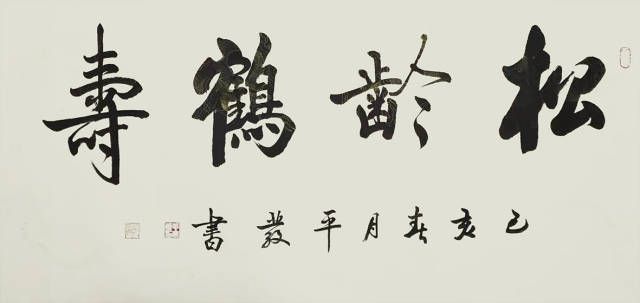 松齡鶴壽
己亥春月平發書